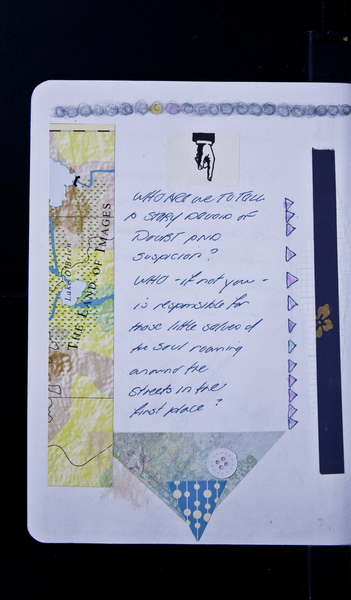 Lake O'Brien
THE LAND OF IMAGES
WHO ARE WE TO TELL
A STORY DEVOID OF
DOUBT AND
SUSPICION?
WHO - if not you -
is responsible for
those little of
the soul roaming
around the
streets in the
first place?